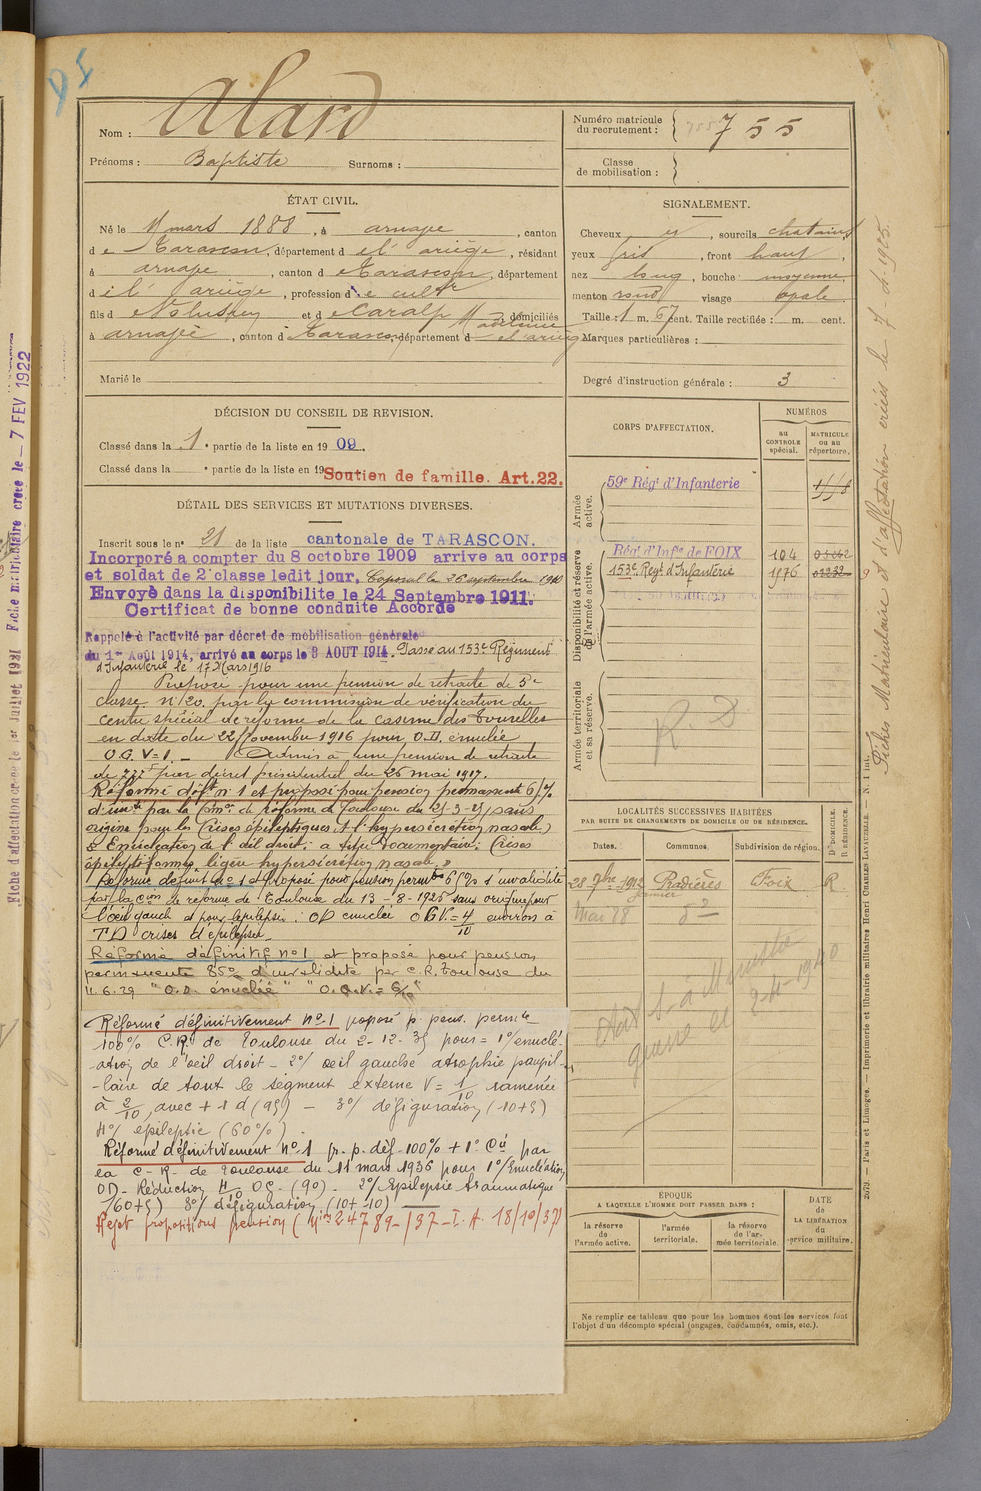 Nom : Alard
Prénoms : Baptiste Surnoms :
Numéro matricule du recrutement : 755
Classe de mobilisation :
ÉTAT CIVIL.
Né le mars 1888, à arnape, canton
de Tarascon, département d el' ariège, résidant
à arnape, canton d e Tarascon, département
d el' ariège, profession de cultr
fils d e et d e Caralp Madeleine domiciliés
à arnape, canton d e Tarascon département d el' ariège
Marié le
SIGNALEMENT.
Cheveux, sourcils chatains
yeux gris, front haut,
nez long, bouche moyenne
menton rond visage opale
Taille : 1 m. 67 cent. Taille rectifiée : m. cent.
Marques particulières :
Degré d'instruction générale : 3
DÉCISION DU CONSEIL DE REVISION.
Classé dans la 1e partie de la liste en 1909.
Classé dans la e partie de la liste en 19 Soutien de famille. Art.22.
DÉTAIL DES SERVICES ET MUTATIONS DIVERSES.
Inscrit sous le no 21 de la liste cantonale de TARASCON.
Incorporé a compter du 8 octobre 1909 arrive au corps
et soldat de 2e classe ledit jour. Caporal le 26 septembre 1910
Envoyè dans la disponibilite le 24 Septembre 1911.
Certificat de bonne conduite Accordé
Rappelé à l'activité par décret de mobilisation générale
du 1er Août 1914, arrivé au corps le 3 AOUT 1914. Passé au 153e Régiment
d'Infanterie le 17 Mars 1916
Proposé pour une pension de retraite de 5e
classe n° 20. par la commission de vérification du
centre spécial de réforme de la caserne des Tourelles
en date du 22 Novembre 1916 pour O.D. énuclée
O.G. V=1. — Admis à une pension de retraite
de par décret présidentiel du 26 mai 1917.
Réformé déft n° 1 et proposé pour pension permanente 65%
d'invté par la Comon de réforme de Toulouse du 21-3-25 (sans
origine pour les crises épileptiques et l'hypersécrétion nasale)
Enucléation de l'œil droit; à titre documentaire: Crises
épileptiformes légère hypersécrétion nasale.
Réformé définit no 1 et proposé pour pension permte 65% d'invalidité
par la Con de réforme de Toulouse du 13-8-1925 sans origine pour
l'œil gauch et pour l'épilepsie : OD enuclée OG V.=4/10 environ à
T D crises d'épilepsie
Réformé définitif no 1 et proposé pour pension
permanente 85% d'invalidité par C.R. Toulouse du
11.6.29 "O.D. énuclée" "O.G.V.= 6/10"
Réformé définitivement no 1 proposé p. pens. permte
100% C.R. de Toulouse du 2-12-35 pour = 1°/ enuclé-
-ation de l'oeil droit - 2°/ œil gauche atrophie papil-
-laire de tout le segment externe V = 1/10 ramenée
à 2/10 avec + 1 d (95) - 3°/ défiguration (10+5)
4°/ epilepsie (60%)
Réformé définitivement no 1 pr. p. déf. 100% + 1° Cé par
la C-R- de Toulouse du 11 mars 1936 pour 1°/Enucléation
OD- Réduction 4/10 OG. (90)- 2°/ Epilepsie traumatique
(60+5) 3°/ défiguration (10+10)
Rejet propositions pension (Min 24789-/37-I.A. 18/10/37)
CORPS D'AFFECTATION.
NUMÉROS
au CONTROLE spécial.
MATRICULE ou au répertoire.
Armée active.
59e Régt d'Infanterie
Disponibilité et réserve de l'armée active.
Régt d'Infie de FOIX 104
153e Régt d'Infanterie 1976
Armée territoriale et sa réserve.
R. D
LOCALITÉS SUCCESSIVES HABITÉES
PAR SUITE DE CHANGEMENTS DE DOMICILE OU DE RÉSIDENCE.
Dates. Communes. Subdivision de région. D DOMICILE. R RÉSIDENCE.
28 9bre 1913 Pradières Foix R.
Mai 28
2-4-1940
ÉPOQUE
A LAQUELLE L'HOMME DOIT PASSER DANS :
la réserve de l'armée active.
l'armée territoriale.
la réserve de l'armée territoriale.
DATE de LA LIBÉRATION du service militaire.
Ne remplir ce tableau que pour les hommes dont les services font
l'objet d'un décompte spécial (engagés, condamnés, omis, etc.).
Fiches Matriculaire et d'affectation créées le 7-4-1925.
2679. — Paris et Limoges. — Imprimerie et librairie militaires Henri CHARLES-LAVAUZELLE. — N. 1 int.
Fiche d'affectation créée le 1er Juillet 1921 Fiche matriculaire créée le — 7 FEV 1922